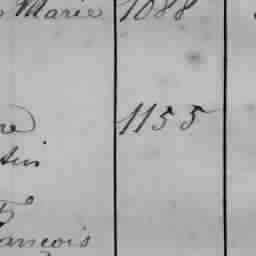 Marie 1088
re 1155
tin
François